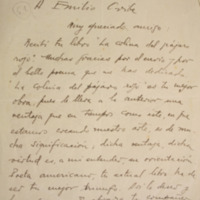 A Emilio Oribe
Muy apreciado amigo:
Recibí tu libro "La colina del pájaro
rojo". Muchas gracias por el envío y por
el bello poema que me has dedicado.
"La colina del pájaro rojo" es tu mejor
obra, pues se lleva a la anterior una
ventaja que en tiempos como este, en que
estamos creando nuestro arte, es de mu-
cha significación, dicha ventaja, dicha
virtud es, a mi entender, su orientación
americano, tu actual libro ha de
ser tu mejor triunfo. Así lo deseo y